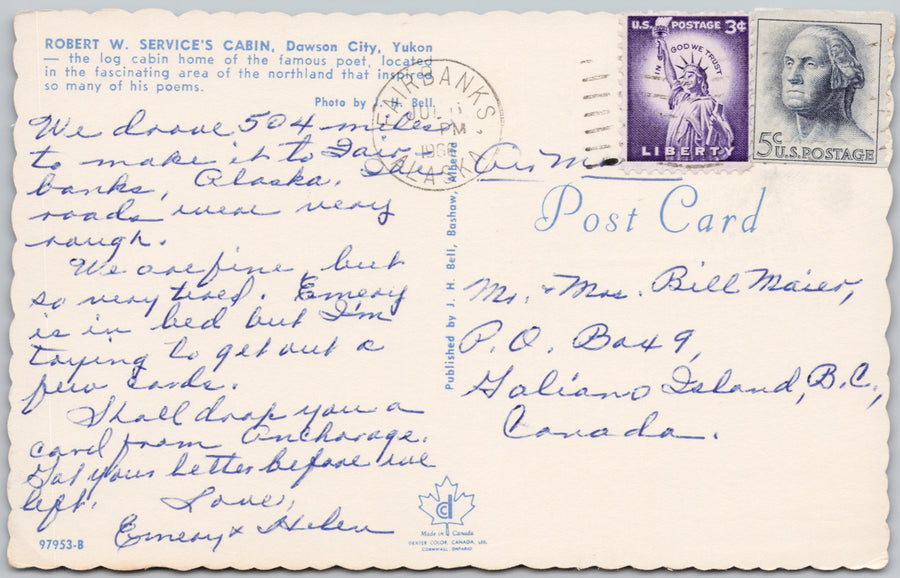 ROBERT W. SERVICE'S CABIN, Dawson City, Yukon
— the log cabin home of the famous poet, located
in the fascinating area of the northland that inspired
so many of his poems.
Photo by J. H. Bell.
We drove 504 miles
to make it to Fair-
banks, Alaska. The
roads were very
rough.
We are fine, but
so very tired. Emery
is in bed but I'm
trying to get out a
few cards.
Shall drop you a
card from Anchorage.
Got your letter before we
left. Love,
Emery & Helen
97953-B
Published by J. H. Bell, Bashaw, Alberta
Made in Canada
DEXTER COLOR CANADA, LTD.
CORNWALL, ONTARIO
FAIRBANKS
JUL
PM
ALASKA
U.S. POSTAGE 3¢
IN GOD WE TRUST
LIBERTY
5c
U.S. POSTAGE
Air Mail
Post Card
Mr. & Mrs. Bill Maier,
P.O. Box 9,
Galiano Island, B.C.,
Canada.